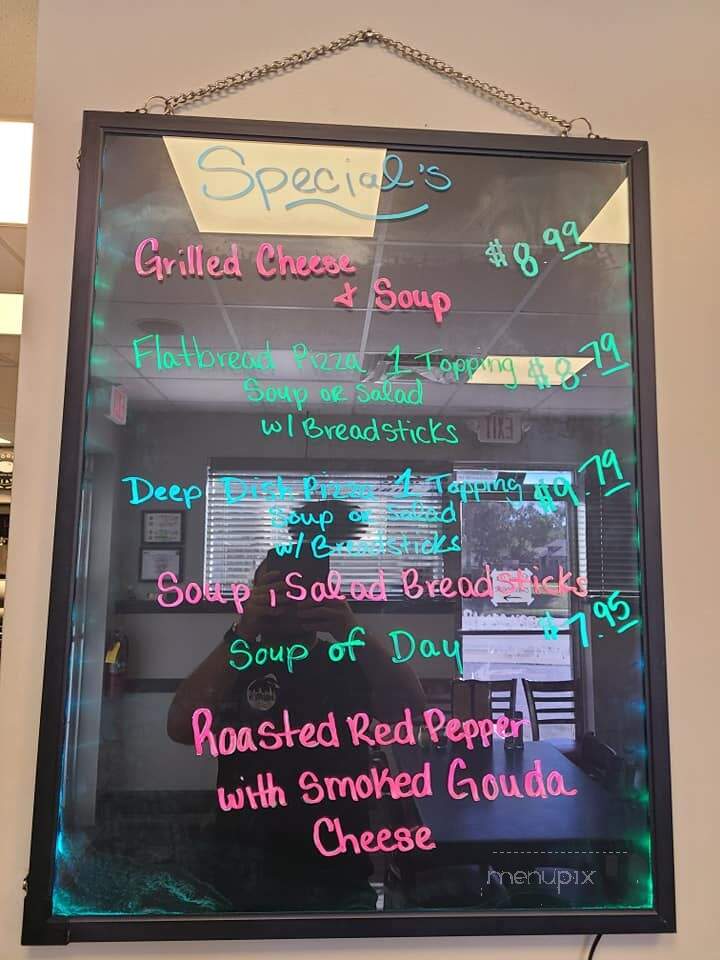 Special's
Grilled Cheese $8.99
& Soup
Flatbread Pizza 1 Topping $8.79
Soup or Salad
w/ Breadsticks
Deep Dish Pizza 1 Topping $9.79
Soup or Salad
w/ Breadsticks
Soup, Salad Breadsticks
$7.95
Soup of Day
Roasted Red Pepper
with Smoked Gouda
Cheese
menupix
EXIT